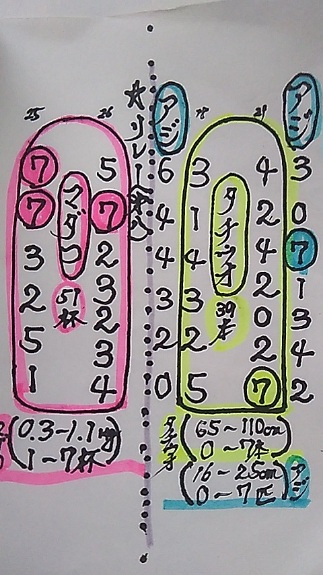 25
26
7
7
3
2
5
1
マダコ
51杯
5
7
2
3
2
3
4
(0.3~1.1kg
1~7杯)
☆リレー
アジ
6
4
4
3
2
0
18
21
3
1
4
3
2
5
タチウオ
39本
4
2
4
2
0
2
7
アジ
3
0
7
1
3
4
2
タチウオ
(65~110cm
0~7本)
(16~25cm
0~7匹)
アジ